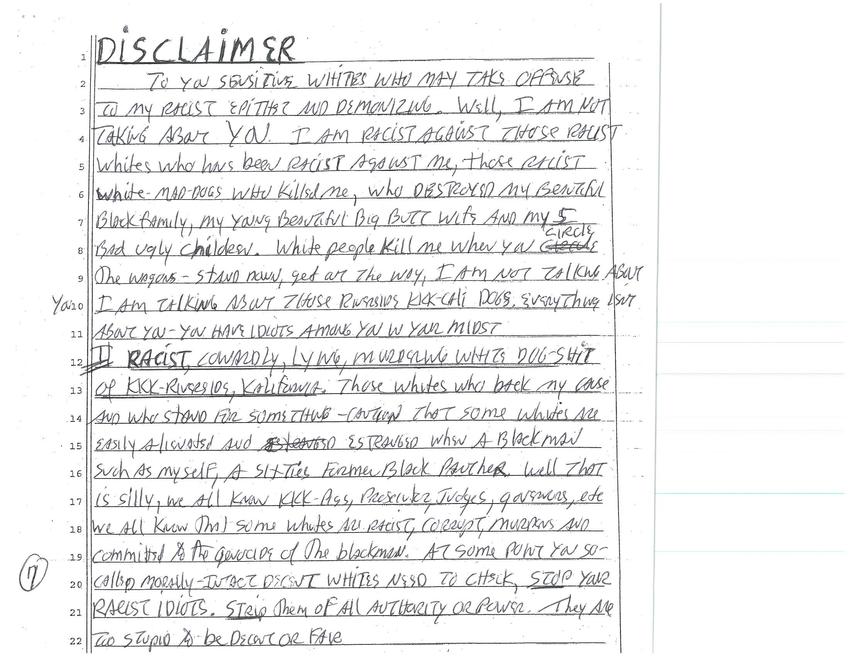 1 DISCLAIMER
2 TO YOU SENSITIVE WHITES WHO MAY TAKE OFFENSE
3 TO MY RACIST EPITHET AND DEMONIZING. Well, I AM NOT
4 TAKING ABOUT YOU. I AM RACIST AGAINST THOSE RACIST
5 whites who has been RACIST AGAINST me, those RACIST
6 white-MAD-DOGS WHO killed me, who DESTROYED my Beautiful
7 Black family, my young Beautiful Big Butt Wife AND my 5
8 Bad ugly children. White people kill me when you CIRCLE
9 The wagons - stand down, get out the way, I AM NOT TALKING ABOUT
You 10 I AM TALKING ABOUT THOSE Riverside KKK-Cali DOGS. EVERYTHING ISN'T
11 ABOUT YOU - YOU HAVE IDIOTS AMONG YOU IN YOUR MIDST
12 RACIST, COWARDLY, LYING, MURDERING WHITE DOG-SHIT
13 OF KKK-RIVERSIDE, KALIFORNIA. Those whites who back my case
14 AND who STAND FOR SOMETHING - CAUTION THAT some whites ARE
15 EASILY Alienated AND ESTRANGED when A Blackman
16 such As myself, A Sixties Former Black Panther. Well That
17 is silly, we all know KKK-Ags, Prosecutor, Judges, governors, etc
18 we all know that some whites are RACIST, CORRUPT, MURDERS AND
19 committed to the genocide of The blackman. AT some point You so-
20 called morally-INTACT DECENT WHITES NEED TO CHECK, STOP YOUR
21 RACIST IDIOTS. STRIP Them of ALL AUTHORITY OR POWER. They are
22 TOO STUPID to be DECENT OR FAIR
7